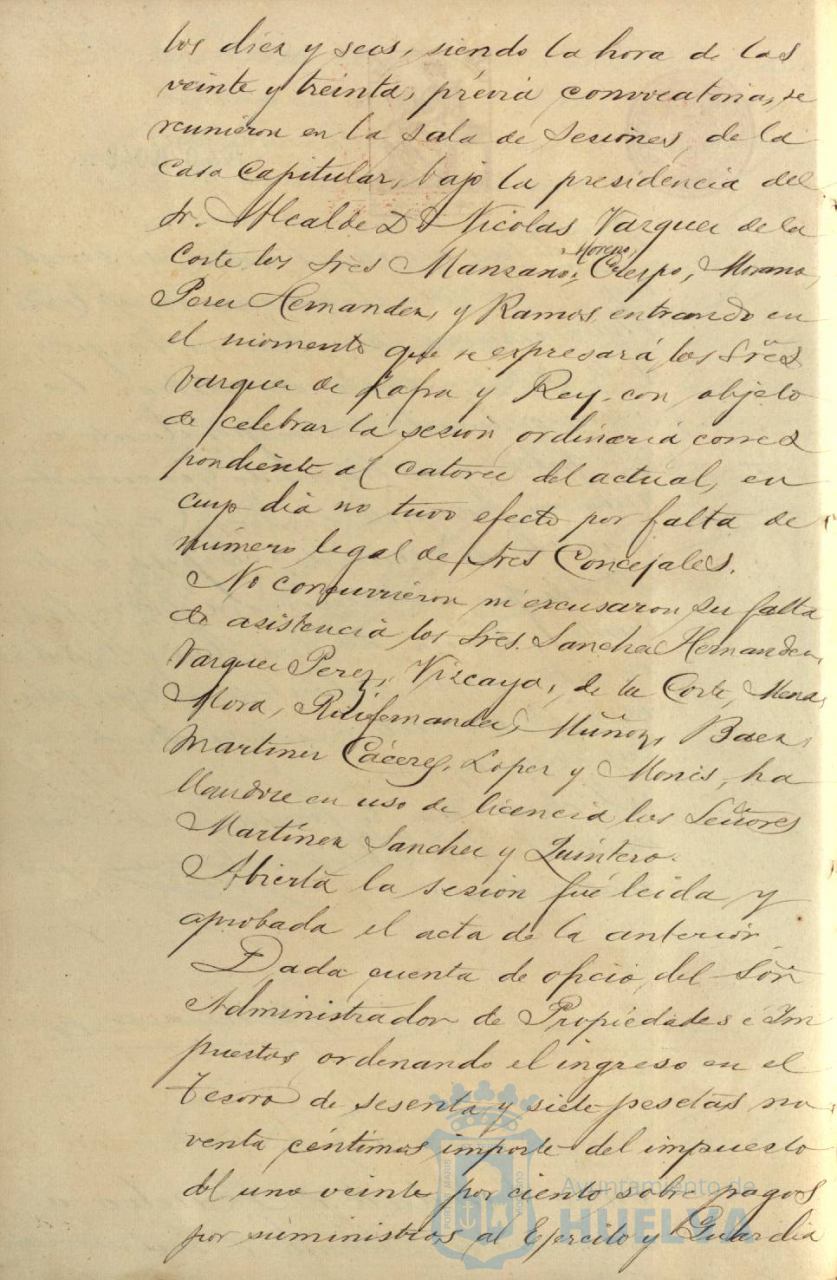 tos diez y seos, siendo la hora de las
veinte y treinta, prévia convocatoria, se
reunieron en la sala de sesiones, de la
Casa Capitular, bajo la presidencia del
Sr. Alcalde Dn Nicolas Vazquez de la
Corte los Sres Manzano, Moreno, Crespo, Morano,
Perez Hernandez, y Ramos, entrando en
el momento que se expresará, los Sres
Vazquez de Zafra y Rey, con objeto
de celebrar la sesion ordinaria corres
pondiente al catorce del actual, en
cuyo dia no tuvo efecto por falta de
número legal de Sres Concejales.
No concurrieron ni excusaron su falta
de asistencia los Sres. Sanchez Hernandez,
Vazquez Perez, Vizcaya, de la Corte, Mena,
Mora, Ruifernandez, Muñoz, Baez,
Martinez Cáceres, Lopez y Monis, ha
llandose en uso de licencia los Señores
Martínez Sanchez y Quintero.
Abierta la sesion fué leida y
aprobada el acta de la anterior.
Dada cuenta de oficio del Sor
Administrador de Propiedades é Im
puestos, ordenando el ingreso en el
Tesoro de sesenta y siete pesetas no
venta céntimos importe del impuesto
del uno veinte por ciento sobre pagos
por suministros al Ejercito y Guardia
Ayuntamiento de
HUELVA